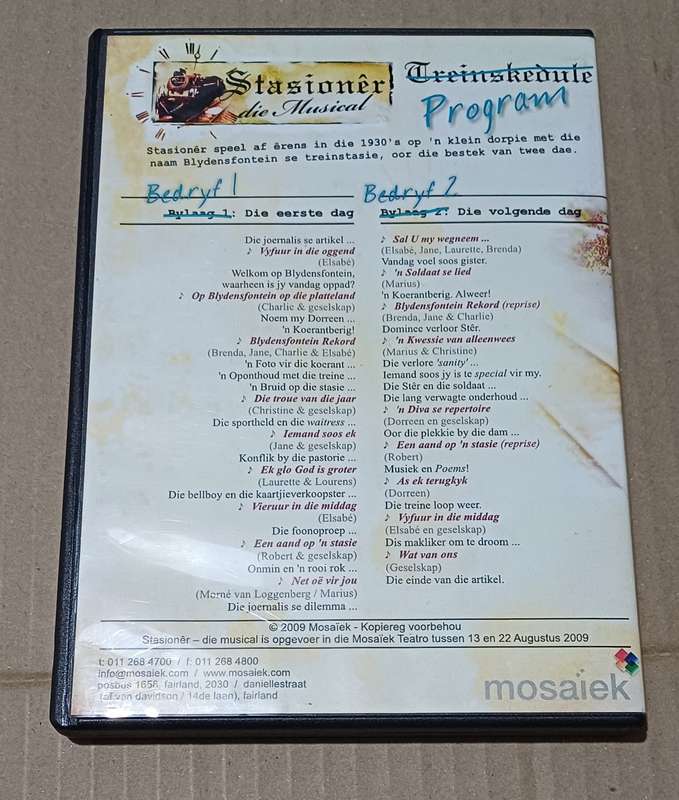 Stasionêr
die Musical
Treinskedule
Program
Stasionêr speel af êrens in die 1930's op 'n klein dorpie met die
naam Blydensfontein se treinstasie, oor die bestek van twee dae.
Bedryf 1
Bylaag 1: Die eerste dag
Die joernalis se artikel ...
♪ Vyfuur in die oggend
(Elsabé)
Welkom op Blydensfontein,
waarheen is jy vandag oppad?
♪ Op Blydensfontein op die platteland
(Charlie & geselskap)
Noem my Dorreen ...
'n Koerantberig!
♪ Blydensfontein Rekord
(Brenda, Jane, Charlie & Elsabé)
'n Foto vir die koerant ...
'n Oponthoud met die treine ...
'n Bruid op die stasie ...
♪ Die troue van die jaar
(Christine & geselskap)
Die sportheld en die waitress ...
♪ Iemand soos ek
(Jane & geselskap)
Konflik by die pastorie ...
♪ Ek glo God is groter
(Laurette & Lourens)
Die bellboy en die kaartjieverkoopster ...
♪ Vieruur in die middag
(Elsabé)
Die foonoproep ...
♪ Een aand op 'n stasie
(Robert & geselskap)
Onmin en 'n rooi rok ...
♪ Net oë vir jou
(Morné van Loggenberg / Marius)
Die joernalis se dilemma ...
Bedryf 2
Bylaag 2: Die volgende dag
♪ Sal U my wegneem ...
(Elsabé, Jane, Laurette, Brenda)
Vandag voel soos gister.
♪ 'n Soldaat se lied
(Marius)
'n Koerantberig. Alweer!
♪ Blydensfontein Rekord (reprise)
(Brenda, Jane & Charlie)
Dominee verloor Stêr.
♪ 'n Kwessie van alleenwees
(Marius & Christine)
Die verlore 'sanity' ...
Iemand soos jy is te special vir my.
Die Stêr en die soldaat ...
Die lang verwagte onderhoud ...
♪ 'n Diva se repertoire
(Dorreen en geselskap)
Oor die plekkie by die dam ...
♪ Een aand op 'n stasie (reprise)
(Robert)
Musiek en Poems!
♪ As ek terugkyk
(Dorreen)
Die treine loop weer.
♪ Vyfuur in die middag
(Elsabé en geselskap)
Dis makliker om te droom ...
♪ Wat van ons
(Geselskap)
Die einde van die artikel.
© 2009 Mosaïek - Kopiereg voorbehou
Stasionêr – die musical is opgevoer in die Mosaïek Teatro tussen 13 en 22 Augustus 2009
t: 011 268 4700 / f: 011 268 4800
info@mosaiek.com / www.mosaiek.com
posbus 1656, fairland, 2030 / daniellestraat
(af van davidson / 14de laan), fairland
mosaïek